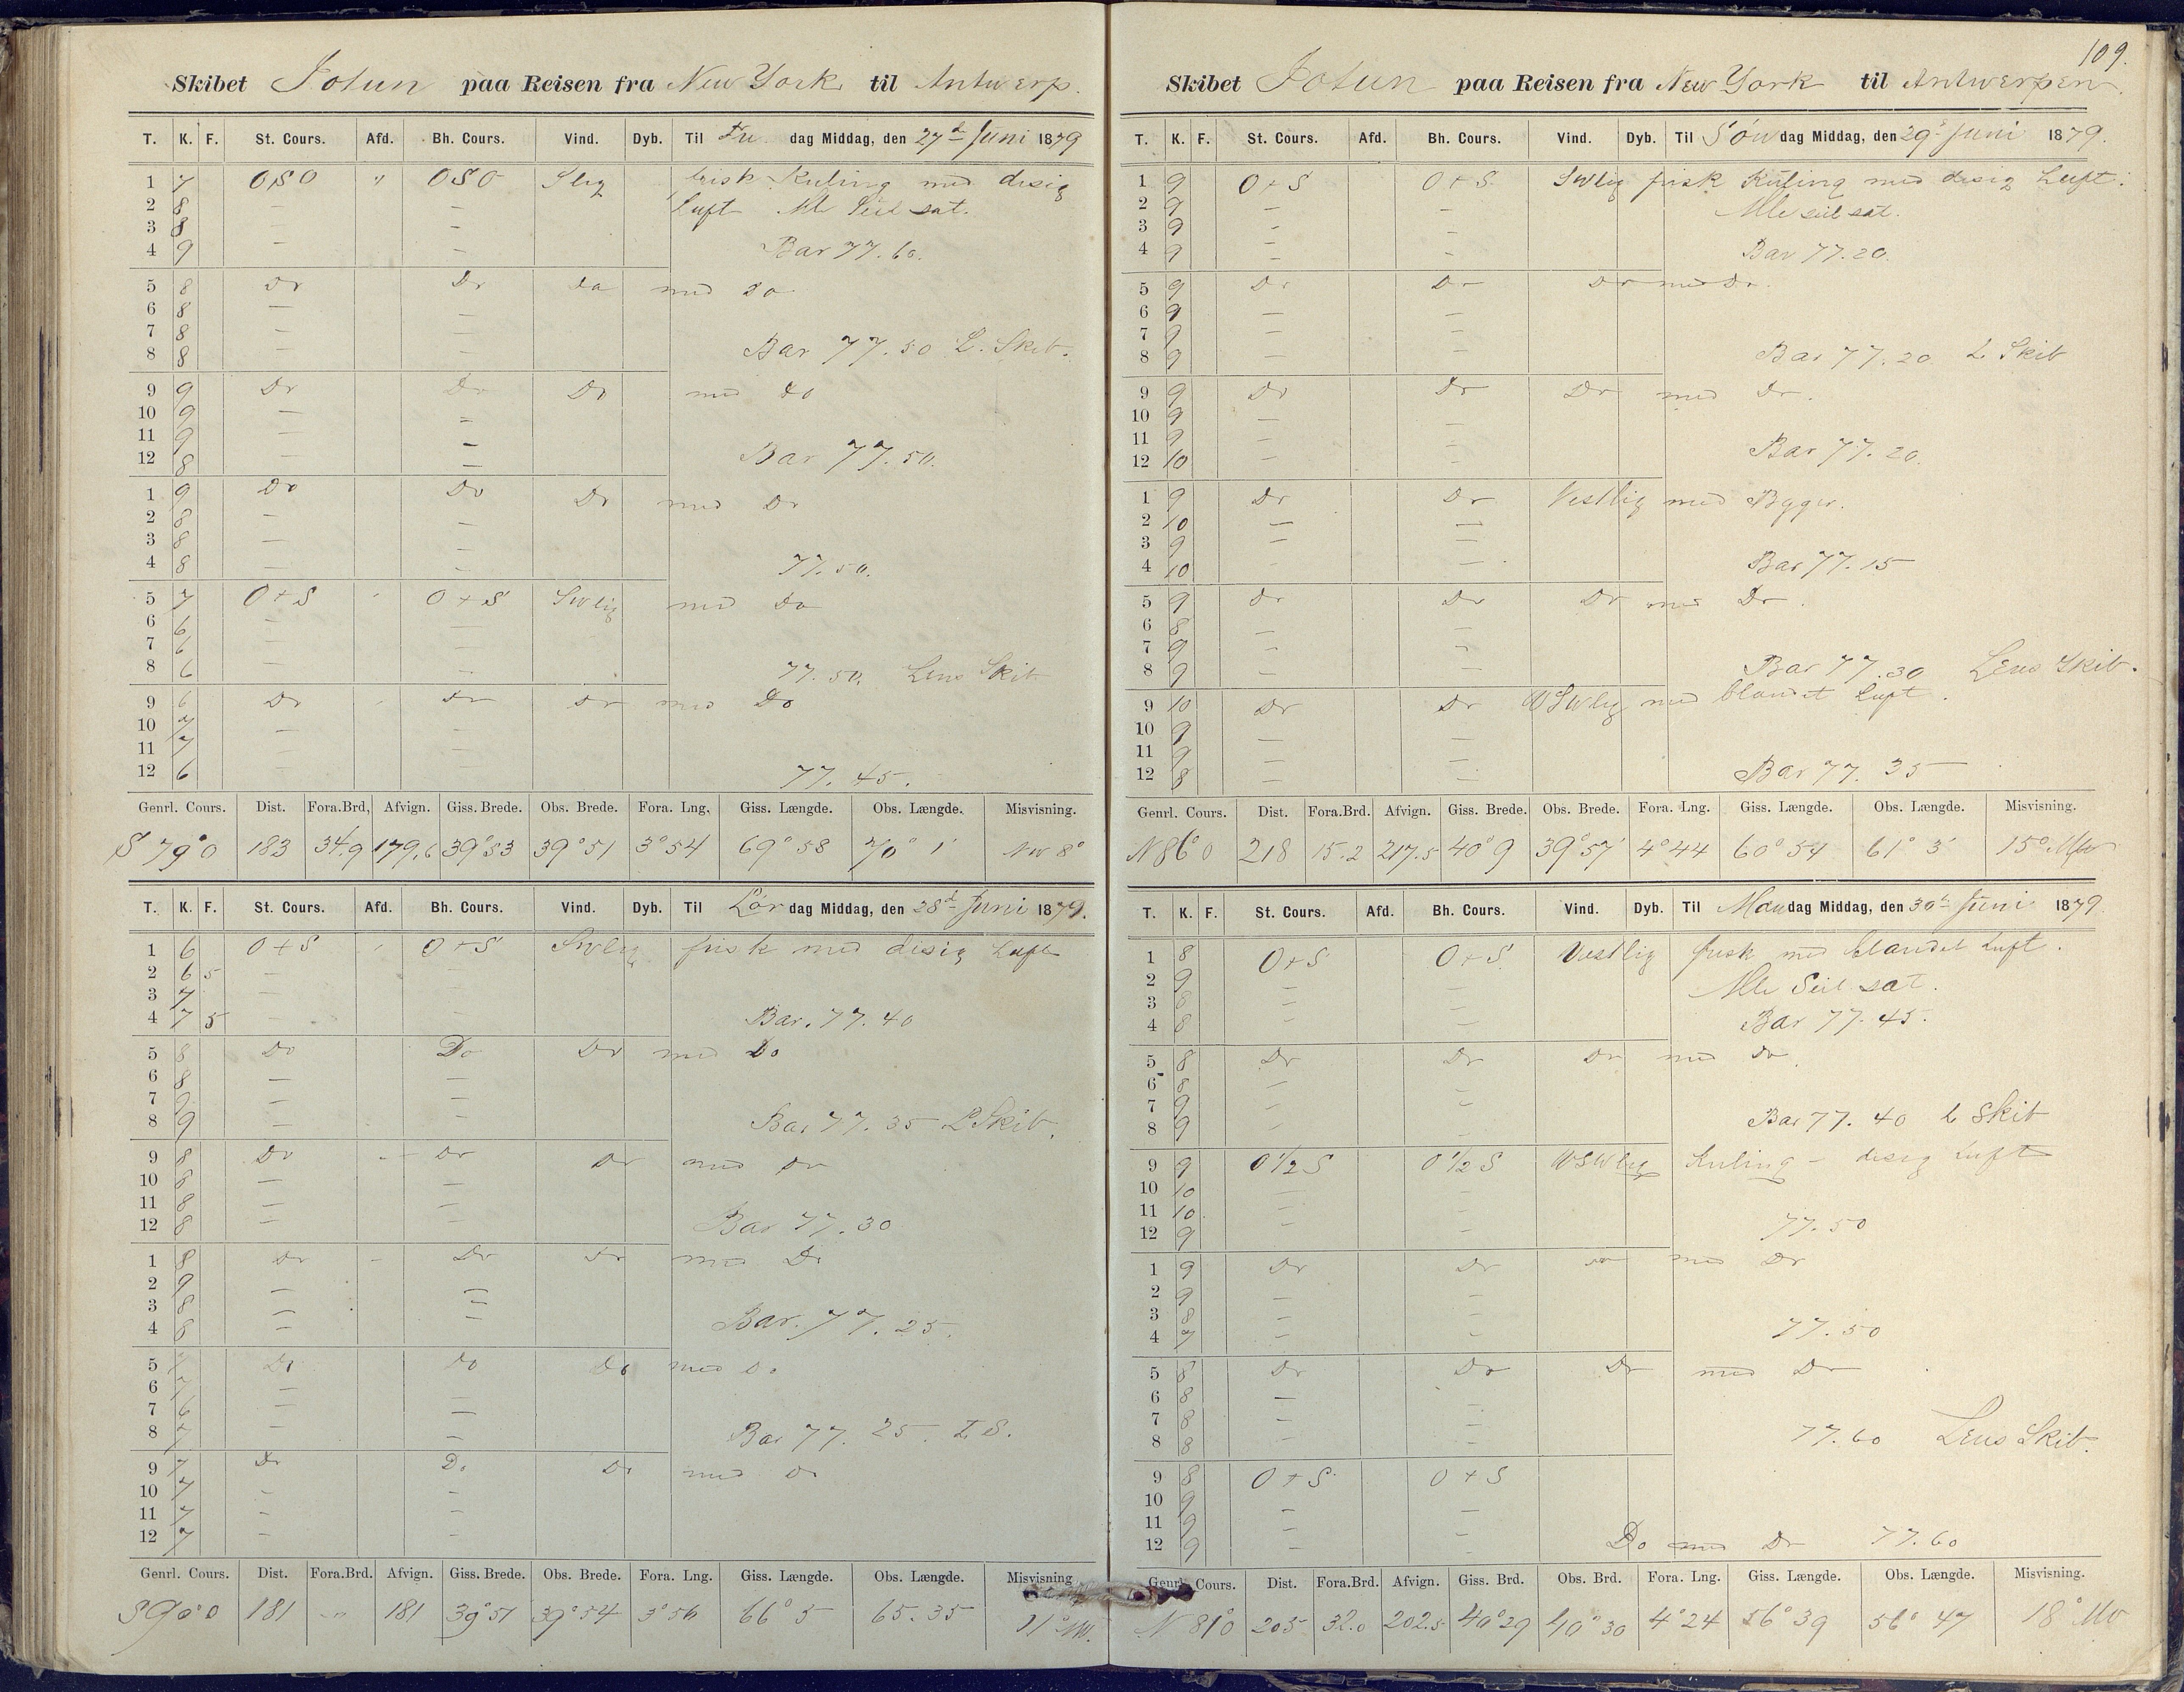 Skibet Jotun paa Reisen fra New York til Antwerp.
T. K. F. St. Cours. Afd. Bh. Cours. Vind. Dyb. Til Fre dag Middag, den 27d Juni 1879
1 7 OSO " OSO Slig frisk Kuling med disig
2 8 — — Luft Alle Seil sat.
3 8 — —
4 9 — — Bar 77.60.
5 8 Do Do Do med Do
6 8 — —
7 8 — —
8 8 — — Bar 77.50 L. Skib.
9 9 Do Do Do med Do
10 9 — —
11 9 — —
12 8 — — Bar 77.50.
1 9 Do Do Do med Do
2 8 — —
3 8 — —
4 8 — — 77.50.
5 7 O+S O+S SWlig med Do
6 6 — —
7 6 — —
8 6 — — 77.50. Lens Skib
9 6 Do Do Do med Do
10 7 — —
11 7 — —
12 6 — — 77.45.
Genrl. Cours. Dist. Fora.Brd, Afvign. Giss. Brede. Obs. Brede. Fora. Lng. Giss. Længde. Obs. Længde. Misvisning.
S 79° O 183 34.9 179,6 39°53 39°51 3°54 69°58 70° 1' NW 8°
T. K. F. St. Cours. Afd. Bh. Cours. Vind. Dyb. Til Lør dag Middag, den 28d Juni 1879.
1 6 O+S O+S SWlig frisk med disig Luft
2 6 5 — —
3 7 — —
4 7 5 — — Bar. 77.40
5 8 Do Do Do med Do
6 8 — —
7 9 — —
8 9 — — Bar 77.35 L Skib.
9 8 Do - Do Do med Do
10 8 — —
11 8 — —
12 8 — — Bar 77.30
1 8 Do - Do Do med Do
2 9 — —
3 8 — —
4 8 — — Bar. 77.25.
5 7 Do Do Do med Do
6 7 — —
7 6 — —
8 7 — — Bar 77.25. L S.
9 7 Do Do Do med Do
10 7 — —
11 7 — —
12 7 — —
Genrl. Cours. Dist. Fora.Brd. Afvign. Giss. Brede. Obs. Brede. Fora. Lng. Giss. Længde. Obs. Længde. Misvisning
S 90° O 181 " 181 39°51 39°54 3°56 66° 5 65.35 11° NW.
109.
Skibet Jotun paa Reisen fra New York til Antwerpen.
T. K. F. St. Cours. Afd. Bh. Cours. Vind. Dyb. Til Søn dag Middag, den 29d Juni 1879.
1 9 O+S O+S SWlig frisk Kuling med disig Luft.
2 9 — — Alle seil sat.
3 9 — —
4 9 — — Bar 77.20.
5 9 Do Do Do med Do.
6 9 — —
7 9 — —
8 9 — — Bar 77.20 L Skib
9 9 Do Do Do med Do.
10 9 — —
11 9 — —
12 10 — — Bar 77.20.
1 9 Do Do Vestlig med Byger.
2 10 — —
3 9 — —
4 10 — — Bar 77.15
5 9 Do Do Do med Do.
6 8 — —
7 9 — —
8 9 — — Bar 77.30 Lens Skib.
9 10 Do Do WSWlig med blandet Luft.
10 9 — —
11 9 — —
12 8 — — Bar 77.35
Genrl. Cours. Dist. Fora.Brd. Afvign. Giss. Brede. Obs. Brede. Fora. Lng. Giss. Længde. Obs. Længde. Misvisning.
N 86° O 218 15.2 217.5 40° 9 39°57' 4°44 60°54 61° 3' 15° NW
T. K. F. St. Cours. Afd. Bh. Cours. Vind. Dyb. Til Man dag Middag, den 30d Juni 1879.
1 8 O+S O+S Vestlig frisk med blandet Luft.
2 9 — — Alle Seil sat.
3 8 — —
4 8 — — Bar 77.45.
5 8 Do Do Do med Do.
6 8 — —
7 9 — —
8 9 — — Bar 77.40 L Skib
9 9 O½S O½S WSWlig Kuling - disig Luft
10 10 — —
11 10 — —
12 9 — — 77.50
1 9 Do Do Do med Do
2 9 — —
3 8 — —
4 7 — — 77.50
5 8 Do Do Do med Do
6 8 — —
7 8 — —
8 8 — — 77.60 Lens Skib.
9 8 O+S O+S
10 9 — —
11 9 — —
12 9 — — Do med Do 77.60
Genrl. Cours. Dist. Fora.Brd. Afvign. Giss. Brd. Obs. Brd. Fora. Lng. Giss. Længde. Obs. Længde. Misvisning.
N 81° O 205 32.0 202.5 40°29 40°30 4°24 56°39 56°47 18° NW